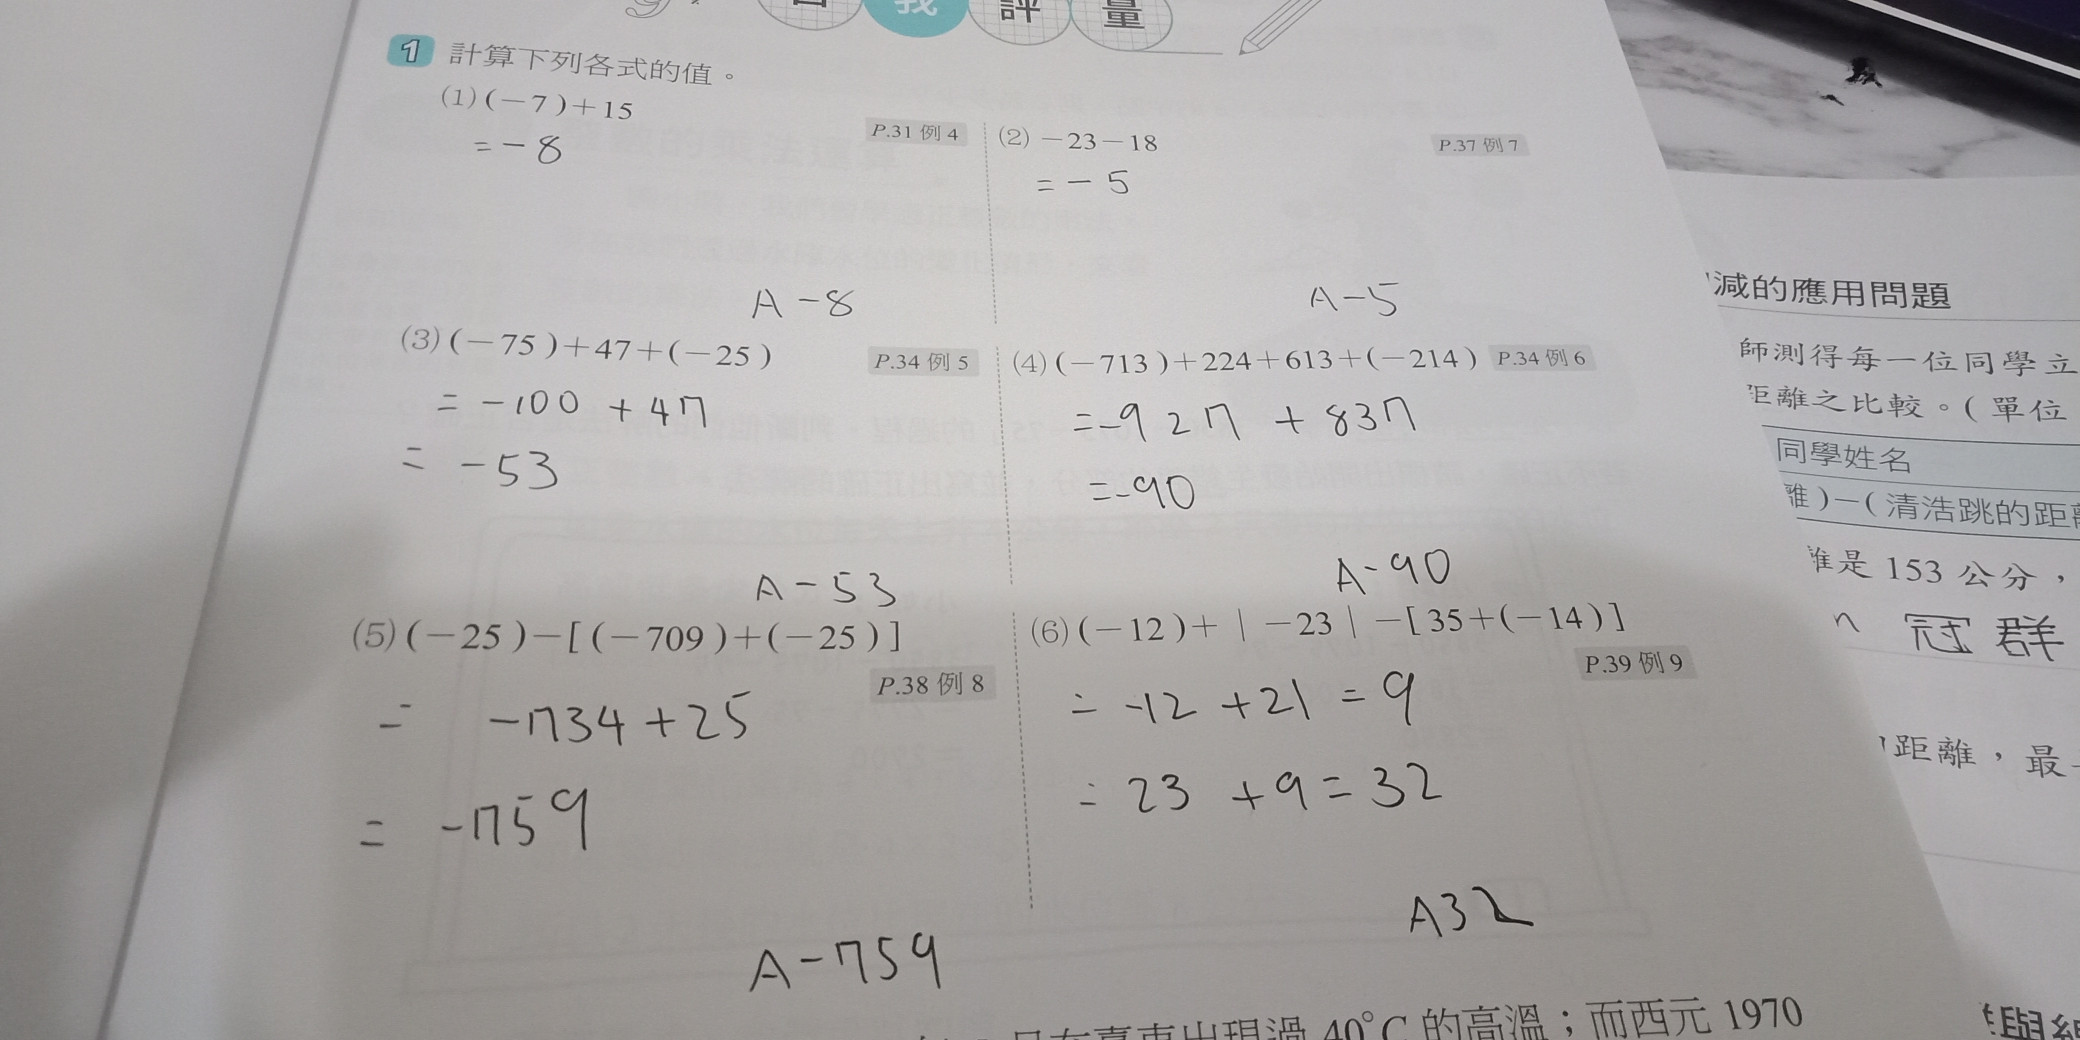 我 評 量
1 計算下列各式的值。
(1)(-7)+15
P.31 例 4
= -8
A -8
(2) -23-18
P.37 例 7
= - 5
A-5
(3)(-75)+47+(-25)
P.34 例 5
= -100 + 47
= -53
A-53
(4)(-713)+224+613+(-214)
P.34 例 6
=-927 + 837
=-90
A-90
(5)(-25)-[(-709)+(-25)]
P.38 例 8
= -734+25
= -759
A-759
(6)(-12)+|-23|-[35+(-14)]
P.39 例 9
= -12 +21 = 9
= 23 +9=32
A32
40°C 的高溫;而西元 1970
減的應用問題
師測得每一位同學立
距離之比較。(單位
同學姓名
離)-(清浩跳的距離
離是 153 公分,
冠群
距離,最